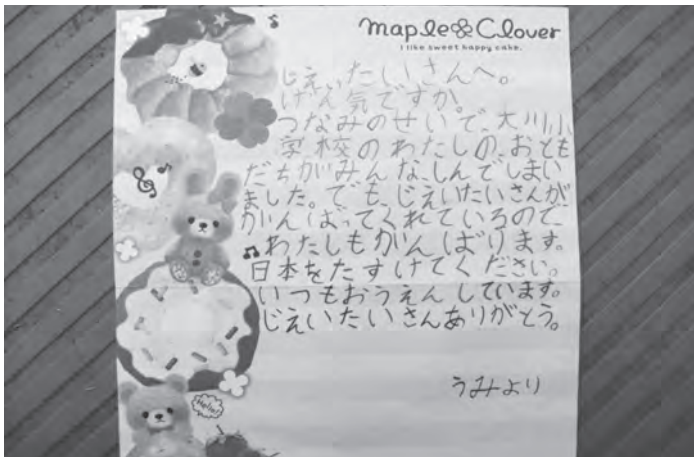 maple&Clover
I like sweet happy cake.
じえいたいさんへ。
げん気ですか。
つなみのせいで、大川小
学校のわたしの、おとも
だちがみんな、しんでしまい
ました。でも、じえいたいさんが
がんばってくれているので
わたしもがんばります。
日本をたすけてください。
いつもおうえんしています。
じえいたいさんありがとう。
うみより
Hello!